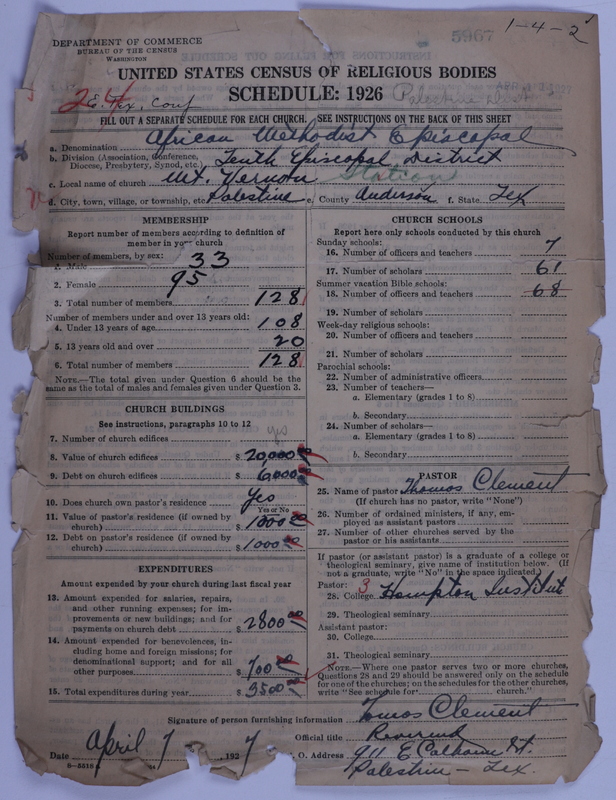 1-4-2
5967
DEPARTMENT OF COMMERCE
BUREAU OF THE CENSUS
WASHINGTON
UNITED STATES CENSUS OF RELIGIOUS BODIES
SCHEDULE: 1926
24
E. Tex. Conf
Palestine Dist
FILL OUT A SEPARATE SCHEDULE FOR EACH CHURCH. SEE INSTRUCTIONS ON THE BACK OF THIS SHEET
a. Denomination African Methodist Episcopal
b. Division (Association, Conference, Diocese, Presbytery, Synod, etc.) Tenth Episcopal District
c. Local name of church Mt. Vernon Station
d. City, town, village, or township, etc. Palestine e. County Anderson f. State Tex
MEMBERSHIP
Report number of members according to definition of
member in your church
Number of members, by sex:
1. Male 33
2. Female 95
3. Total number of members 128
Number of members under and over 13 years old:
4. Under 13 years of age 108
5. 13 years old and over 20
6. Total number of members 128
NOTE.—The total given under Question 6 should be the
same as the total of males and females given under Question 3.
CHURCH BUILDINGS
See instructions, paragraphs 10 to 12
7. Number of church edifices yes
8. Value of church edifices $ 20,000.00
9. Debt on church edifices $ 6,000.00
10. Does church own pastor's residence Yes
Yes or No
11. Value of pastor's residence (if owned by
church)
12. Debt on pastor's residence (if owned by
church) $ 1000.00
EXPENDITURES
Amount expended by your church during last fiscal year
13. Amount expended for salaries, repairs,
and other running expenses; for im-
provements or new buildings; and for
payments on church debt $ 2800.00
14. Amount expended for benevolences, in-
cluding home and foreign missions; for
denominational support; and for all
other purposes $ 700.00
15. Total expenditures during year $ 3500.00
CHURCH SCHOOLS
Report here only schools conducted by this church
Sunday schools:
16. Number of officers and teachers 7
17. Number of scholars 61
Summer vacation Bible schools:
18. Number of officers and teachers 68
19. Number of scholars
Week-day religious schools:
20. Number of officers and teachers
21. Number of scholars
Parochial schools:
22. Number of administrative officers
23. Number of teachers—
a. Elementary (grades 1 to 8)
b. Secondary
24. Number of scholars—
a. Elementary (grades 1 to 8)
b. Secondary
PASTOR
25. Name of pastor Thomas Clement
(If church has no pastor, write "None")
26. Number of ordained ministers, if any, em-
ployed as assistant pastors
27. Number of other churches served by the
pastor or his assistants
If pastor (or assistant pastor) is a graduate of a college or
theological seminary, give name of institution below. (If
not a graduate, write "No" in the space indicated.)
Pastor: 3
28. College Hampton Institute
29. Theological seminary
Assistant pastor:
30. College
31. Theological seminary
NOTE.—Where one pastor serves two or more churches,
Questions 28 and 29 should be answered only on the schedule
for one of the churches; on the schedules for the other churches,
write "See schedule for church."
Signature of person furnishing information Tomos Clement
Official title Reverend
Date April 7, 1927 P. O. Address 911 E Calhoun St.
Palestine - Tex.
8-5516